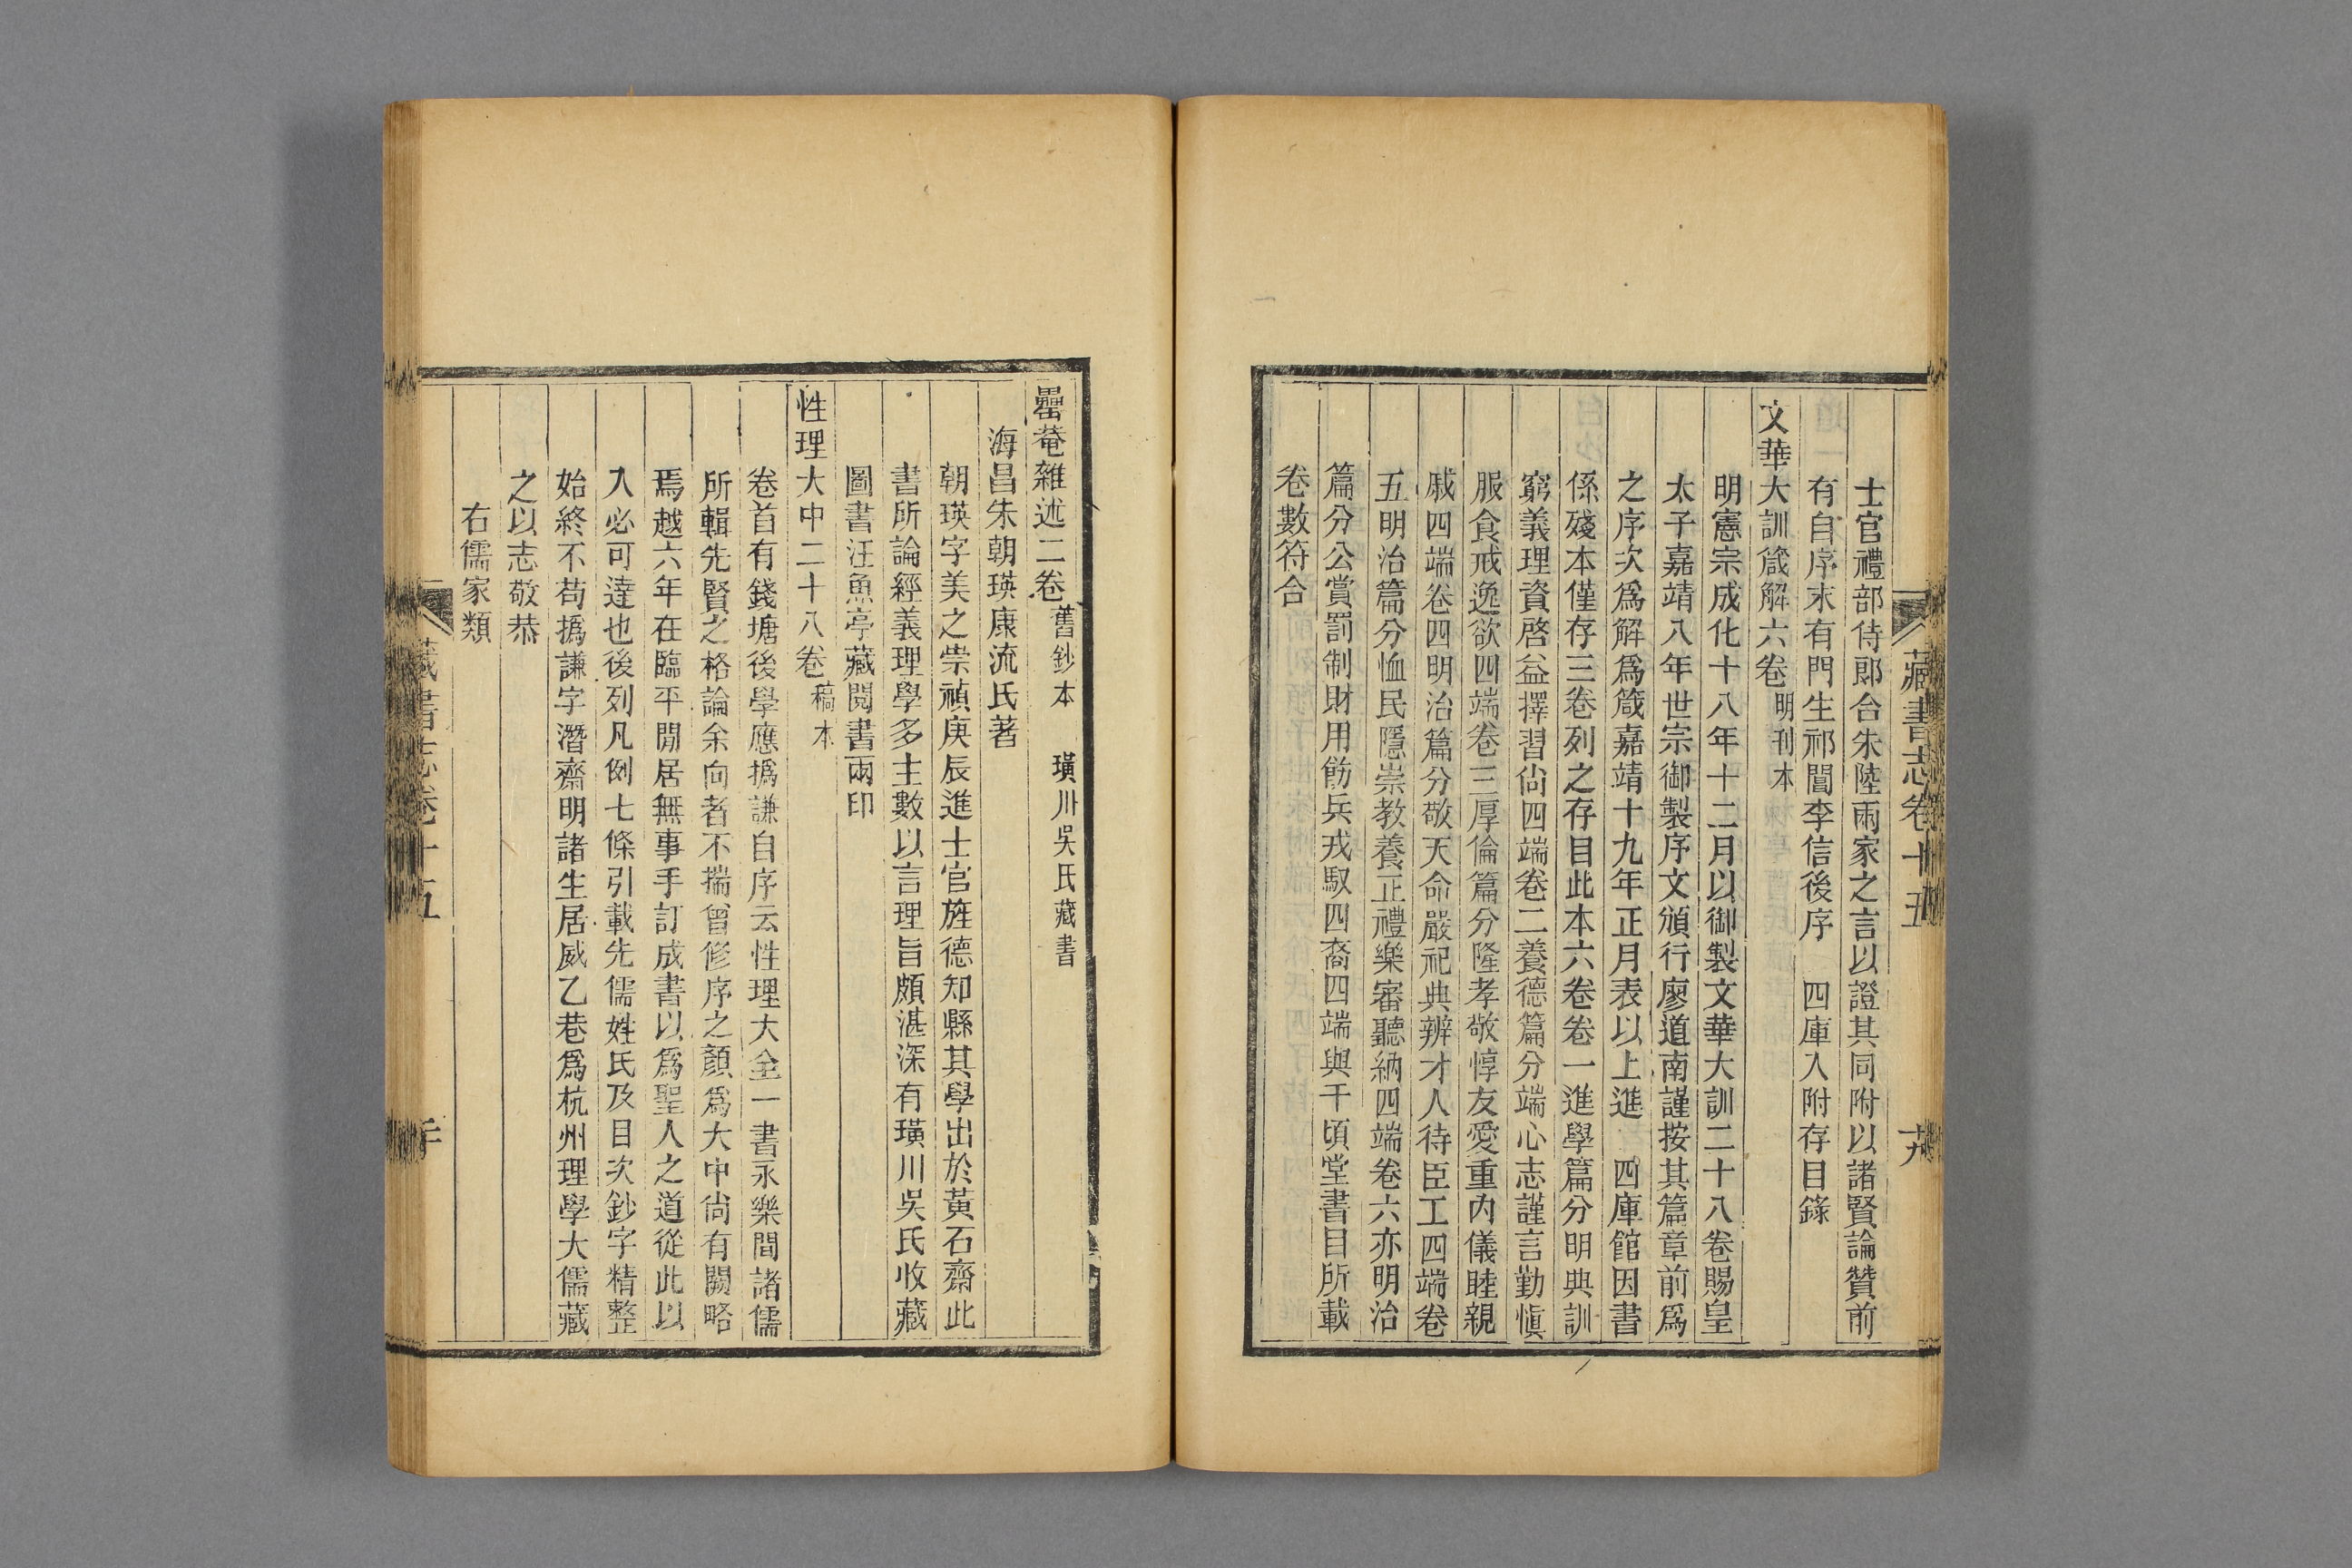 藏書志卷十五
十九
士官禮部侍郎合朱陸兩家之言以證其同附以諸賢論贊前
有自序末有門生祁閶李信後序　四庫入附存目錄
文華大訓箴解六卷 明刊本
明憲宗成化十八年十二月以御製文華大訓二十八卷賜皇
太子嘉靖八年世宗御製序文頒行廖道南謹按其篇章前爲
之序次爲解爲箴嘉靖十九年正月表以上進　四庫館因書
係殘本僅存三卷列之存目此本六卷卷一進學篇分明典訓
窮義理資啓益擇習尙四端卷二養德篇分端心志謹言勤愼
服食戒逸欲四端卷三厚倫篇分隆孝敬惇友愛重內儀睦親
戚四端卷四明治篇分敬天命嚴祀典辨才人待臣工四端卷
五明治篇分恤民隱崇教養正禮樂審聽納四端卷六亦明治
篇分公賞罰制財用飭兵戎馭四裔四端與千頃堂書目所載
卷數符合
罍菴雜述二卷 舊鈔本　璜川吳氏藏書
海昌朱朝瑛康流氏著
朝瑛字美之崇禎庚辰進士官旌德知縣其學出於黃石齋此
書所論經義理學多主數以言理旨頗湛深有璜川吳氏收藏
圖書汪魚亭藏閱書兩印
性理大中二十八卷 稿本
卷首有錢塘後學應撝謙自序云性理大全一書永樂間諸儒
所輯先賢之格論余向者不揣曾修序之顏爲大中尙有闕略
焉越六年在臨平閒居無事手訂成書以爲聖人之道從此以
入必可達也後列凡例七條引載先儒姓氏及目次鈔字精整
始終不苟撝謙字潛齋明諸生居威乙巷爲杭州理學大儒藏
之以志敬恭
右儒家類
藏書志卷十五